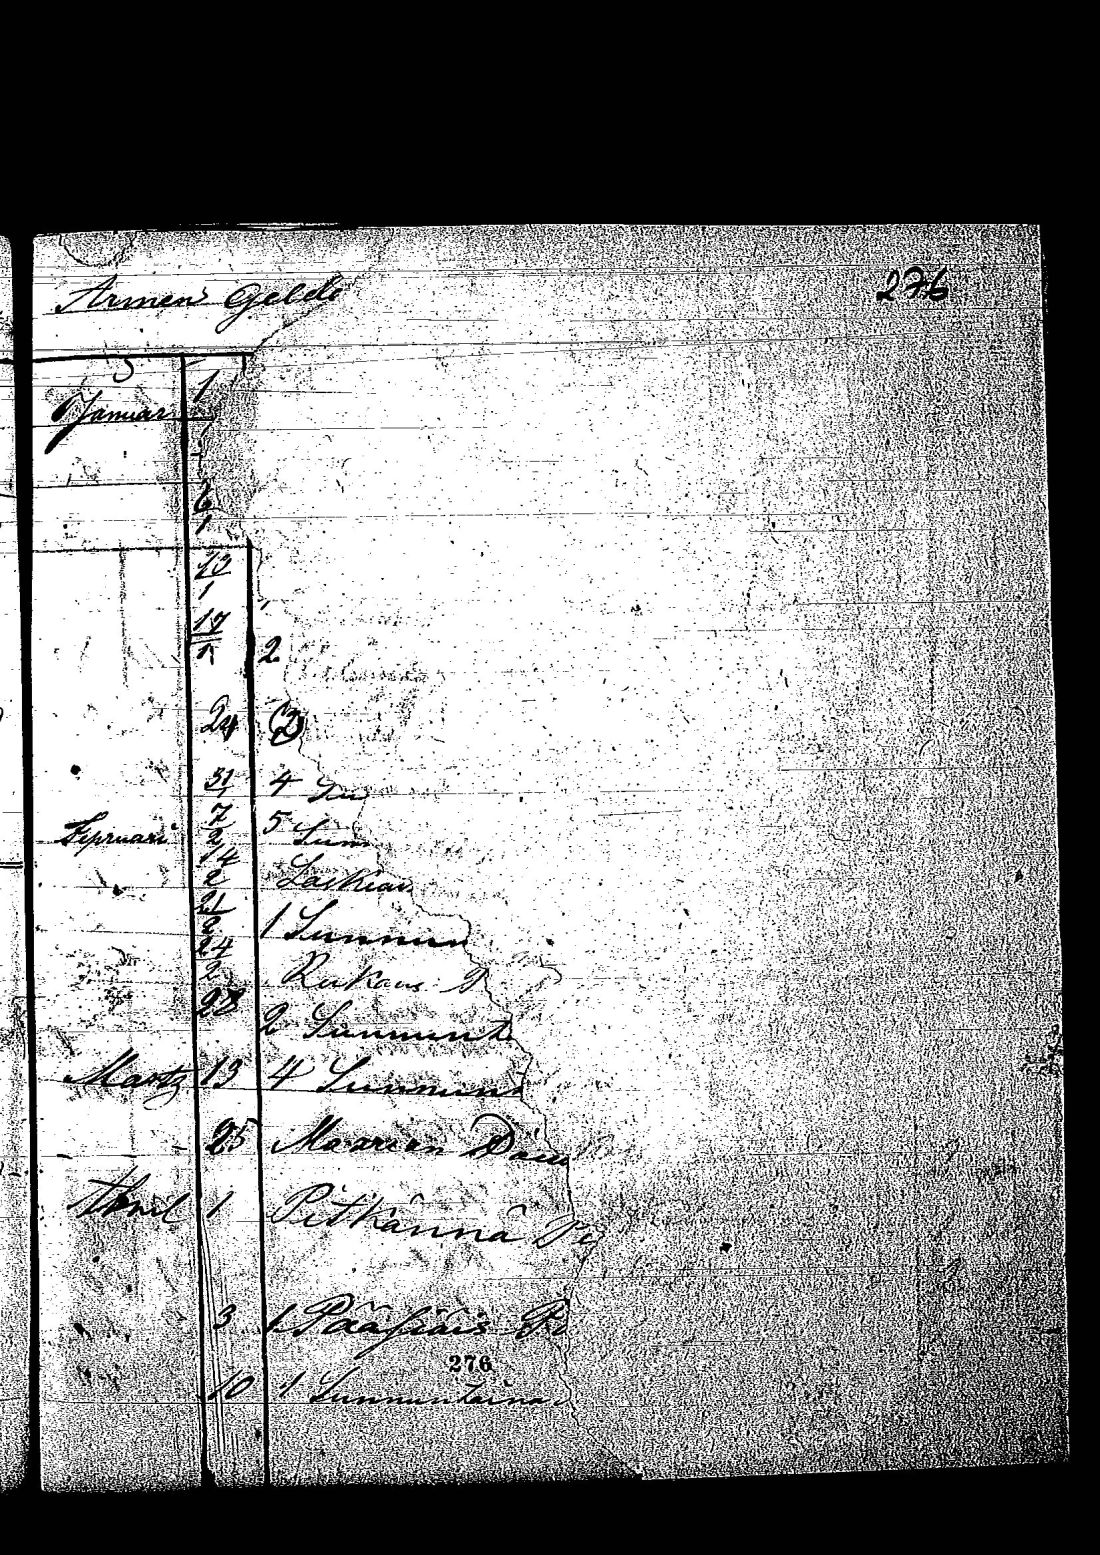 Armen Gelde
276
Januar 1
1
6
1
13
1
17
1 2
24 (2)
31 4 Su
7 5 Sun
Fepruari 2
14
2 Laskiai
21
2 1 Sunnun
24
2 Rukous P
28
2 Sunnunt
Martz 13 4 Sunnun
25 Maarian Päiv
April 1 Pitkännä Pe
3 1 Pääsiäis P
276
10 1 Sunnuntaina